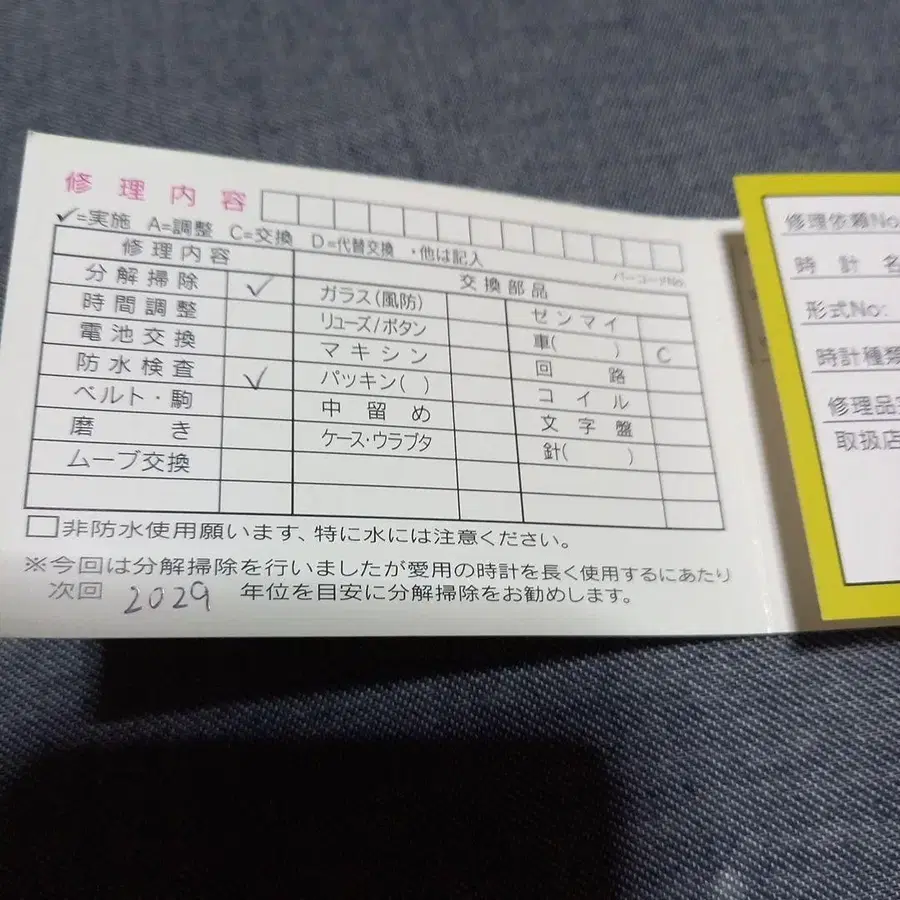 修理内容
✓=実施 A=調整 C=交換 D=代替交換 ・他は記入
バーコードNo
修理内容 交換部品
分解掃除 ✓ ガラス(風防) ゼンマイ
時間調整 リューズ/ボタン 車( ) C
電池交換 マキシン 回路
防水検査 ✓ パッキン( ) コイル
ベルト・駒 中留め 文字盤
磨き ケース・ウラブタ 針( )
ムーブ交換
□非防水使用願います、特に水には注意ください。
※今回は分解掃除を行いましたが愛用の時計を長く使用するにあたり
次回 2029 年位を目安に分解掃除をお勧めします。
修理依頼No
時計名
形式No:
時計種類
修理品
取扱店